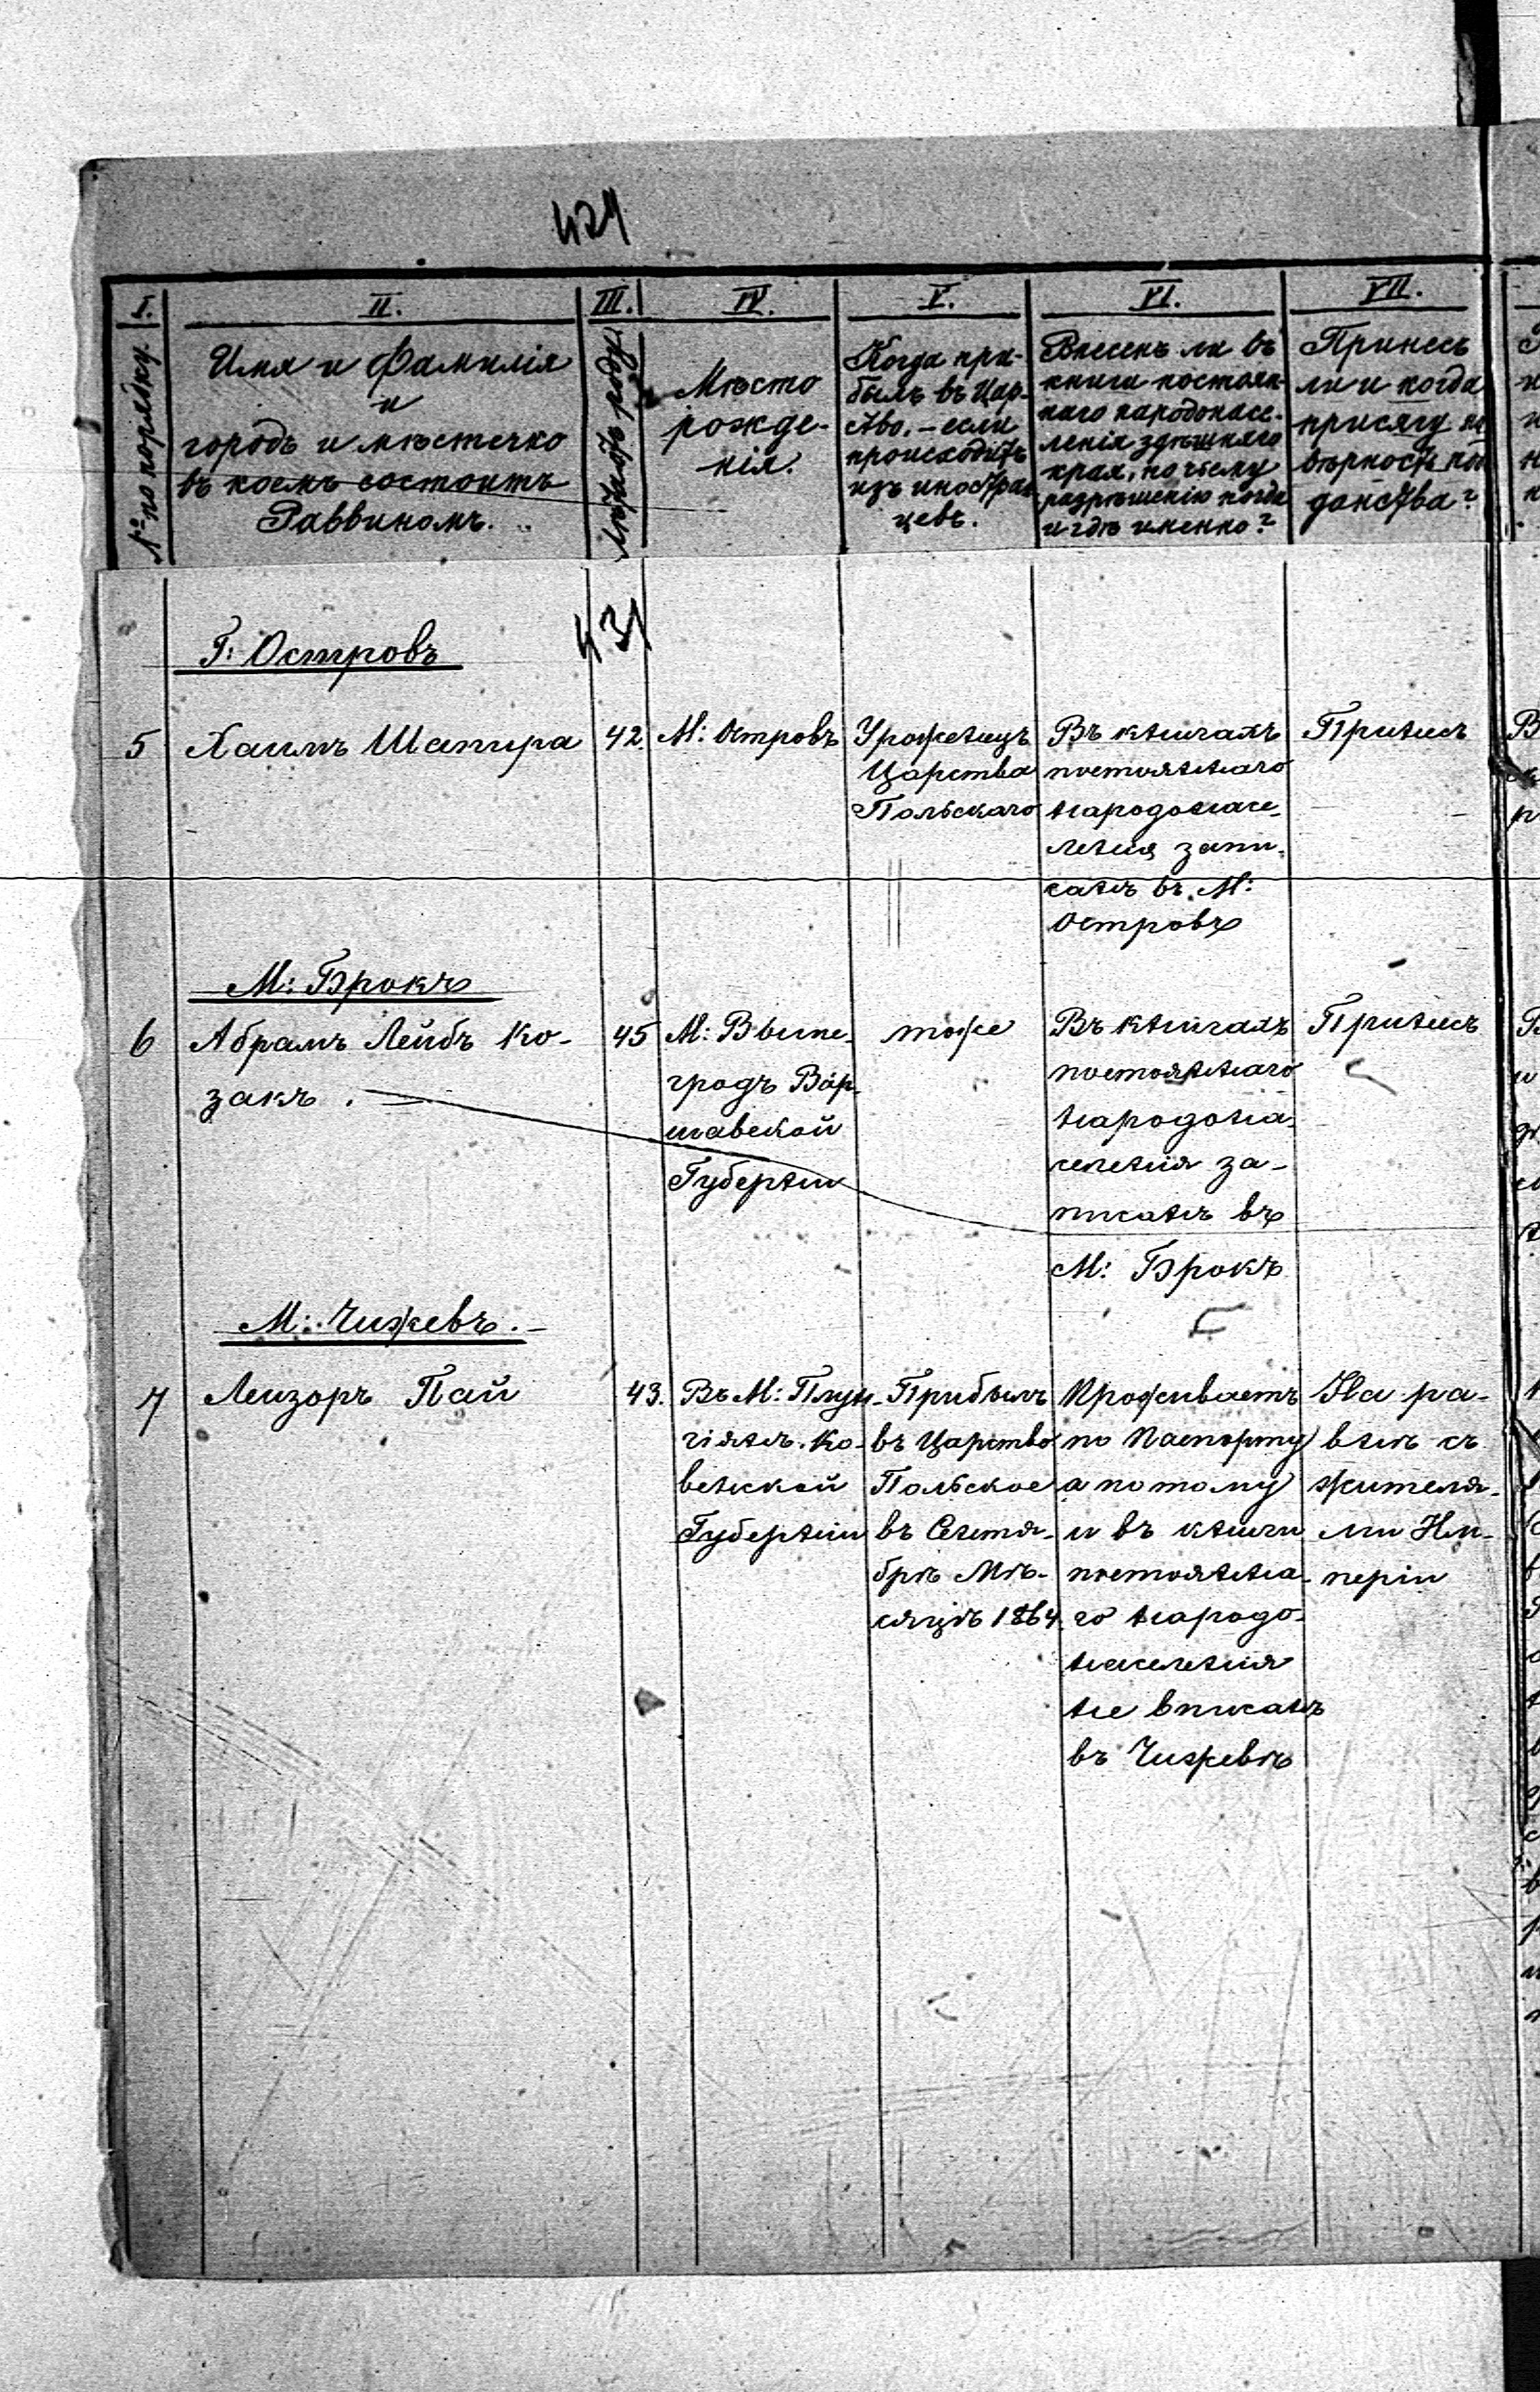 424
I.
№ по порядку.
II.
Имя и Фамилія
и
городъ и мѣстечко
въ коемъ состоитъ
Раввиномъ.
III.
Лѣтъ отъ роду.
IV.
Мѣсто
рожде-
нія.
V.
Когда при-
былъ въ Цар-
ство, - если
происходитъ
изъ иностран
цевъ.
VI.
Внесенъ ли въ
книги постоян-
наго народонасе-
ленія здѣшняго
края, по чьему
разрѣшенію когда
и гдѣ именно?
VII.
Принесъ
ли и когда
присягу на
вѣрность под
данства?
431
Г: Островъ
5
Хаимъ Шапира
42
М: Островъ
Уроженецъ
Царства
Польскаго
Въ книгахъ
постояннаго
народонасе-
ленія запи-
санъ въ М:
Островѣ
Принесъ
М: Брокъ
6
Абрамъ Лейбъ Ко-
закъ.
45
М: Выше-
градъ Вар-
шавской
Губерніи
тоже
Въ книгахъ
постояннаго
народона-
селенія за-
писанъ въ
М: Брокъ
Принесъ
М: Чижевъ.
7
Лейзоръ Пай
43.
Въ М: Плун-
гіянъ. Ко-
венской
Губерніи
Прибылъ
въ Царство
Польское
въ Сентя-
брѣ Мѣ-
сяцѣ 1864
Проживаетъ
по Паспорту
а потому
и въ книги
постоянна-
го народо-
населенія
не вписанъ
въ Чижевѣ
На ра-
внѣ съ
жителя-
ми Им-
періи